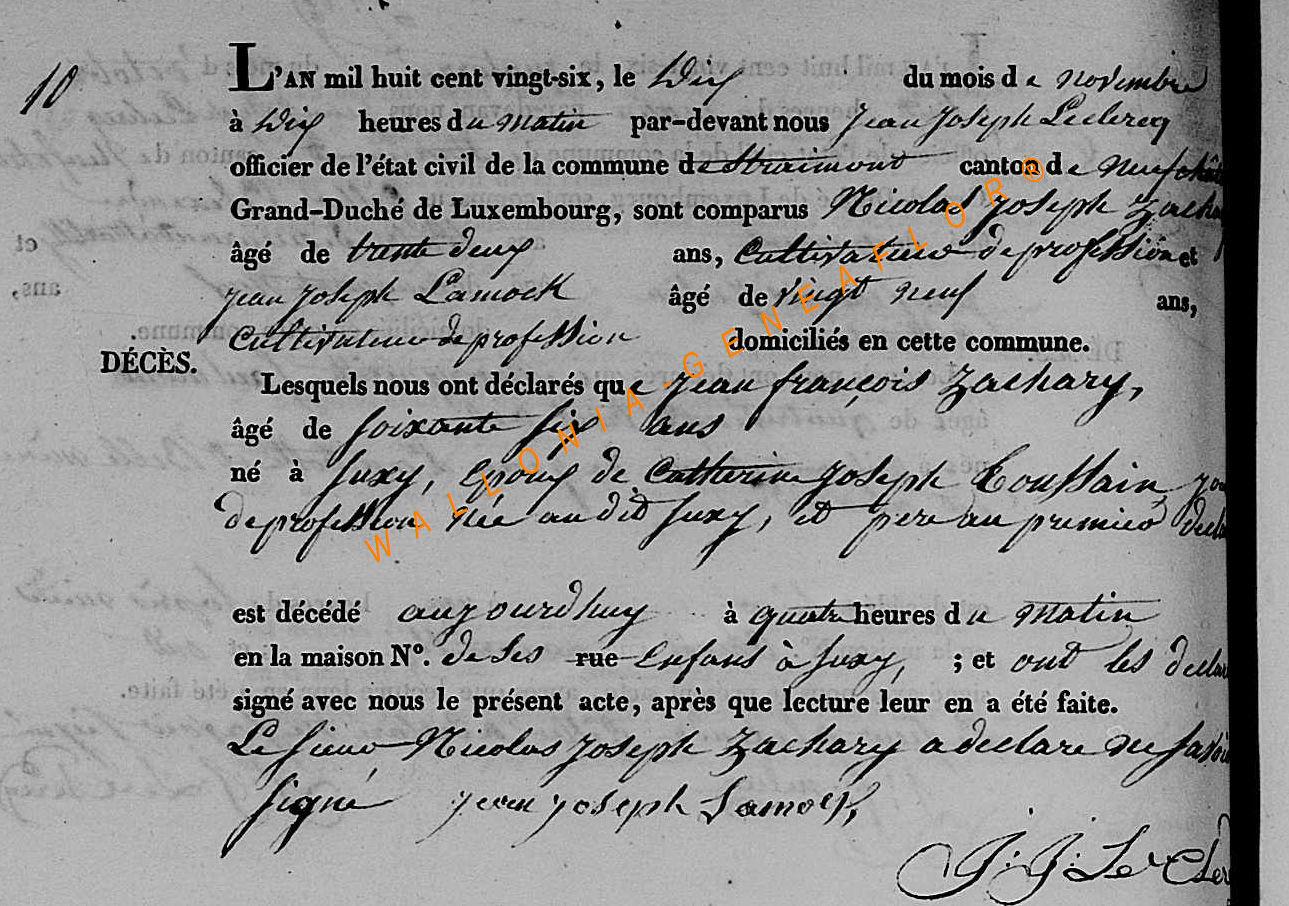 10
L'AN mil huit cent vingt-six, le dix du mois de novembre
à dix heures du matin par-devant nous Jean Joseph Leclercq
officier de l'état civil de la commune de Straimont canton de Neufchât
Grand-Duché de Luxembourg, sont comparus Nicolas Joseph Zachary
âgé de trente deux ans, Cultivateur de profession et
Jean Joseph Lamock âgé de vingt neuf ans,
Cultivateur de profession domiciliés en cette commune.
DÉCÈS.
Lesquels nous ont déclarés que Jean françois Zachary,
âgé de soixante six ans
né à Suxy, époux de Catherine Joseph Toussain
de profession née au dit Suxy, et pere au premier decla
est décédé aujourdhuy à quatre heures du matin
en la maison N°. de ses rue enfans à Suxy, ; et ont les declar
signé avec nous le présent acte, après que lecture leur en a été faite.
Le sieur Nicolas Joseph Zachary a declare ne savoi
signé Jean Joseph Lamock,
J: J: Le Cler
WALLONIA-GENEAFLOR®